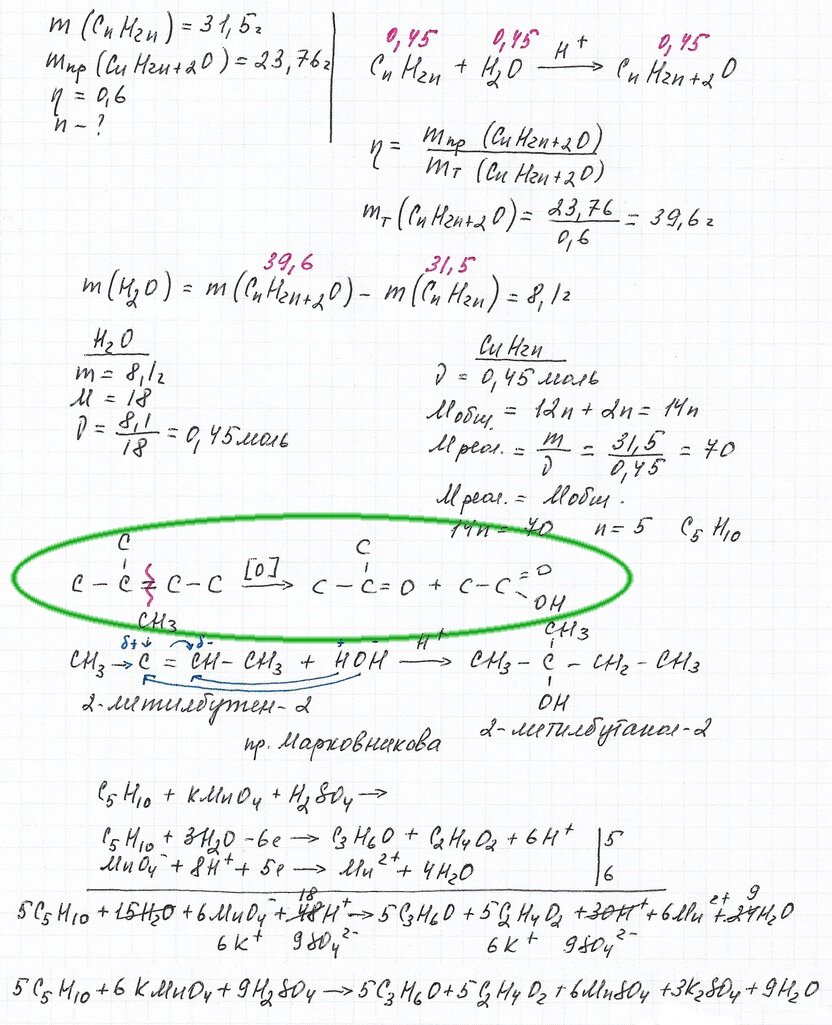 m (CnH2n) = 31,5г
mпр (CnH2n+2O) = 23,76г
η = 0,6
n - ?
0,45 0,45 0,45
CnH2n + H2O —H+→ CnH2n+2O
η = mпр (CnH2n+2O) / mт (CnH2n+2O)
mт (CnH2n+2O) = 23,76 / 0,6 = 39,6г
39,6 31,5
m (H2O) = m (CnH2n+2O) - m (CnH2n) = 8,1г
H2O
m = 8,1г
M = 18
ν = 8,1 / 18 = 0,45 моль
CnH2n
ν = 0,45 моль
Mобщ. = 12n + 2n = 14n
Mреал. = m / ν = 31,5 / 0,45 = 70
Mреал. = Mобщ.
14n = 70 n = 5 C5H10
C C
C - C = C - C —[O]→ C - C = O + C - C =O - OH
CH3 CH3
δ+ δ- + - H+
CH3 → C = CH - CH3 + HOH → CH3 - C - CH2 - CH3
OH
2-метилбутен-2 2-метилбутанол-2
пр. Марковникова
C5H10 + KMnO4 + H2SO4 →
C5H10 + 3H2O - 6e → C3H6O + C2H4O2 + 6H+ | 5
MnO4- + 8H+ + 5e → Mn2+ + 4H2O | 6
18 9
5C5H10 + 15H2O + 6MnO4- + 48H+ → 5C3H6O + 5C2H4O2 + 30H+ + 6Mn2+ + 24H2O
6K+ 9SO4 2- 6K+ 9SO4 2-
5C5H10 + 6KMnO4 + 9H2SO4 → 5C3H6O + 5C2H4O2 + 6MnSO4 + 3K2SO4 + 9H2O